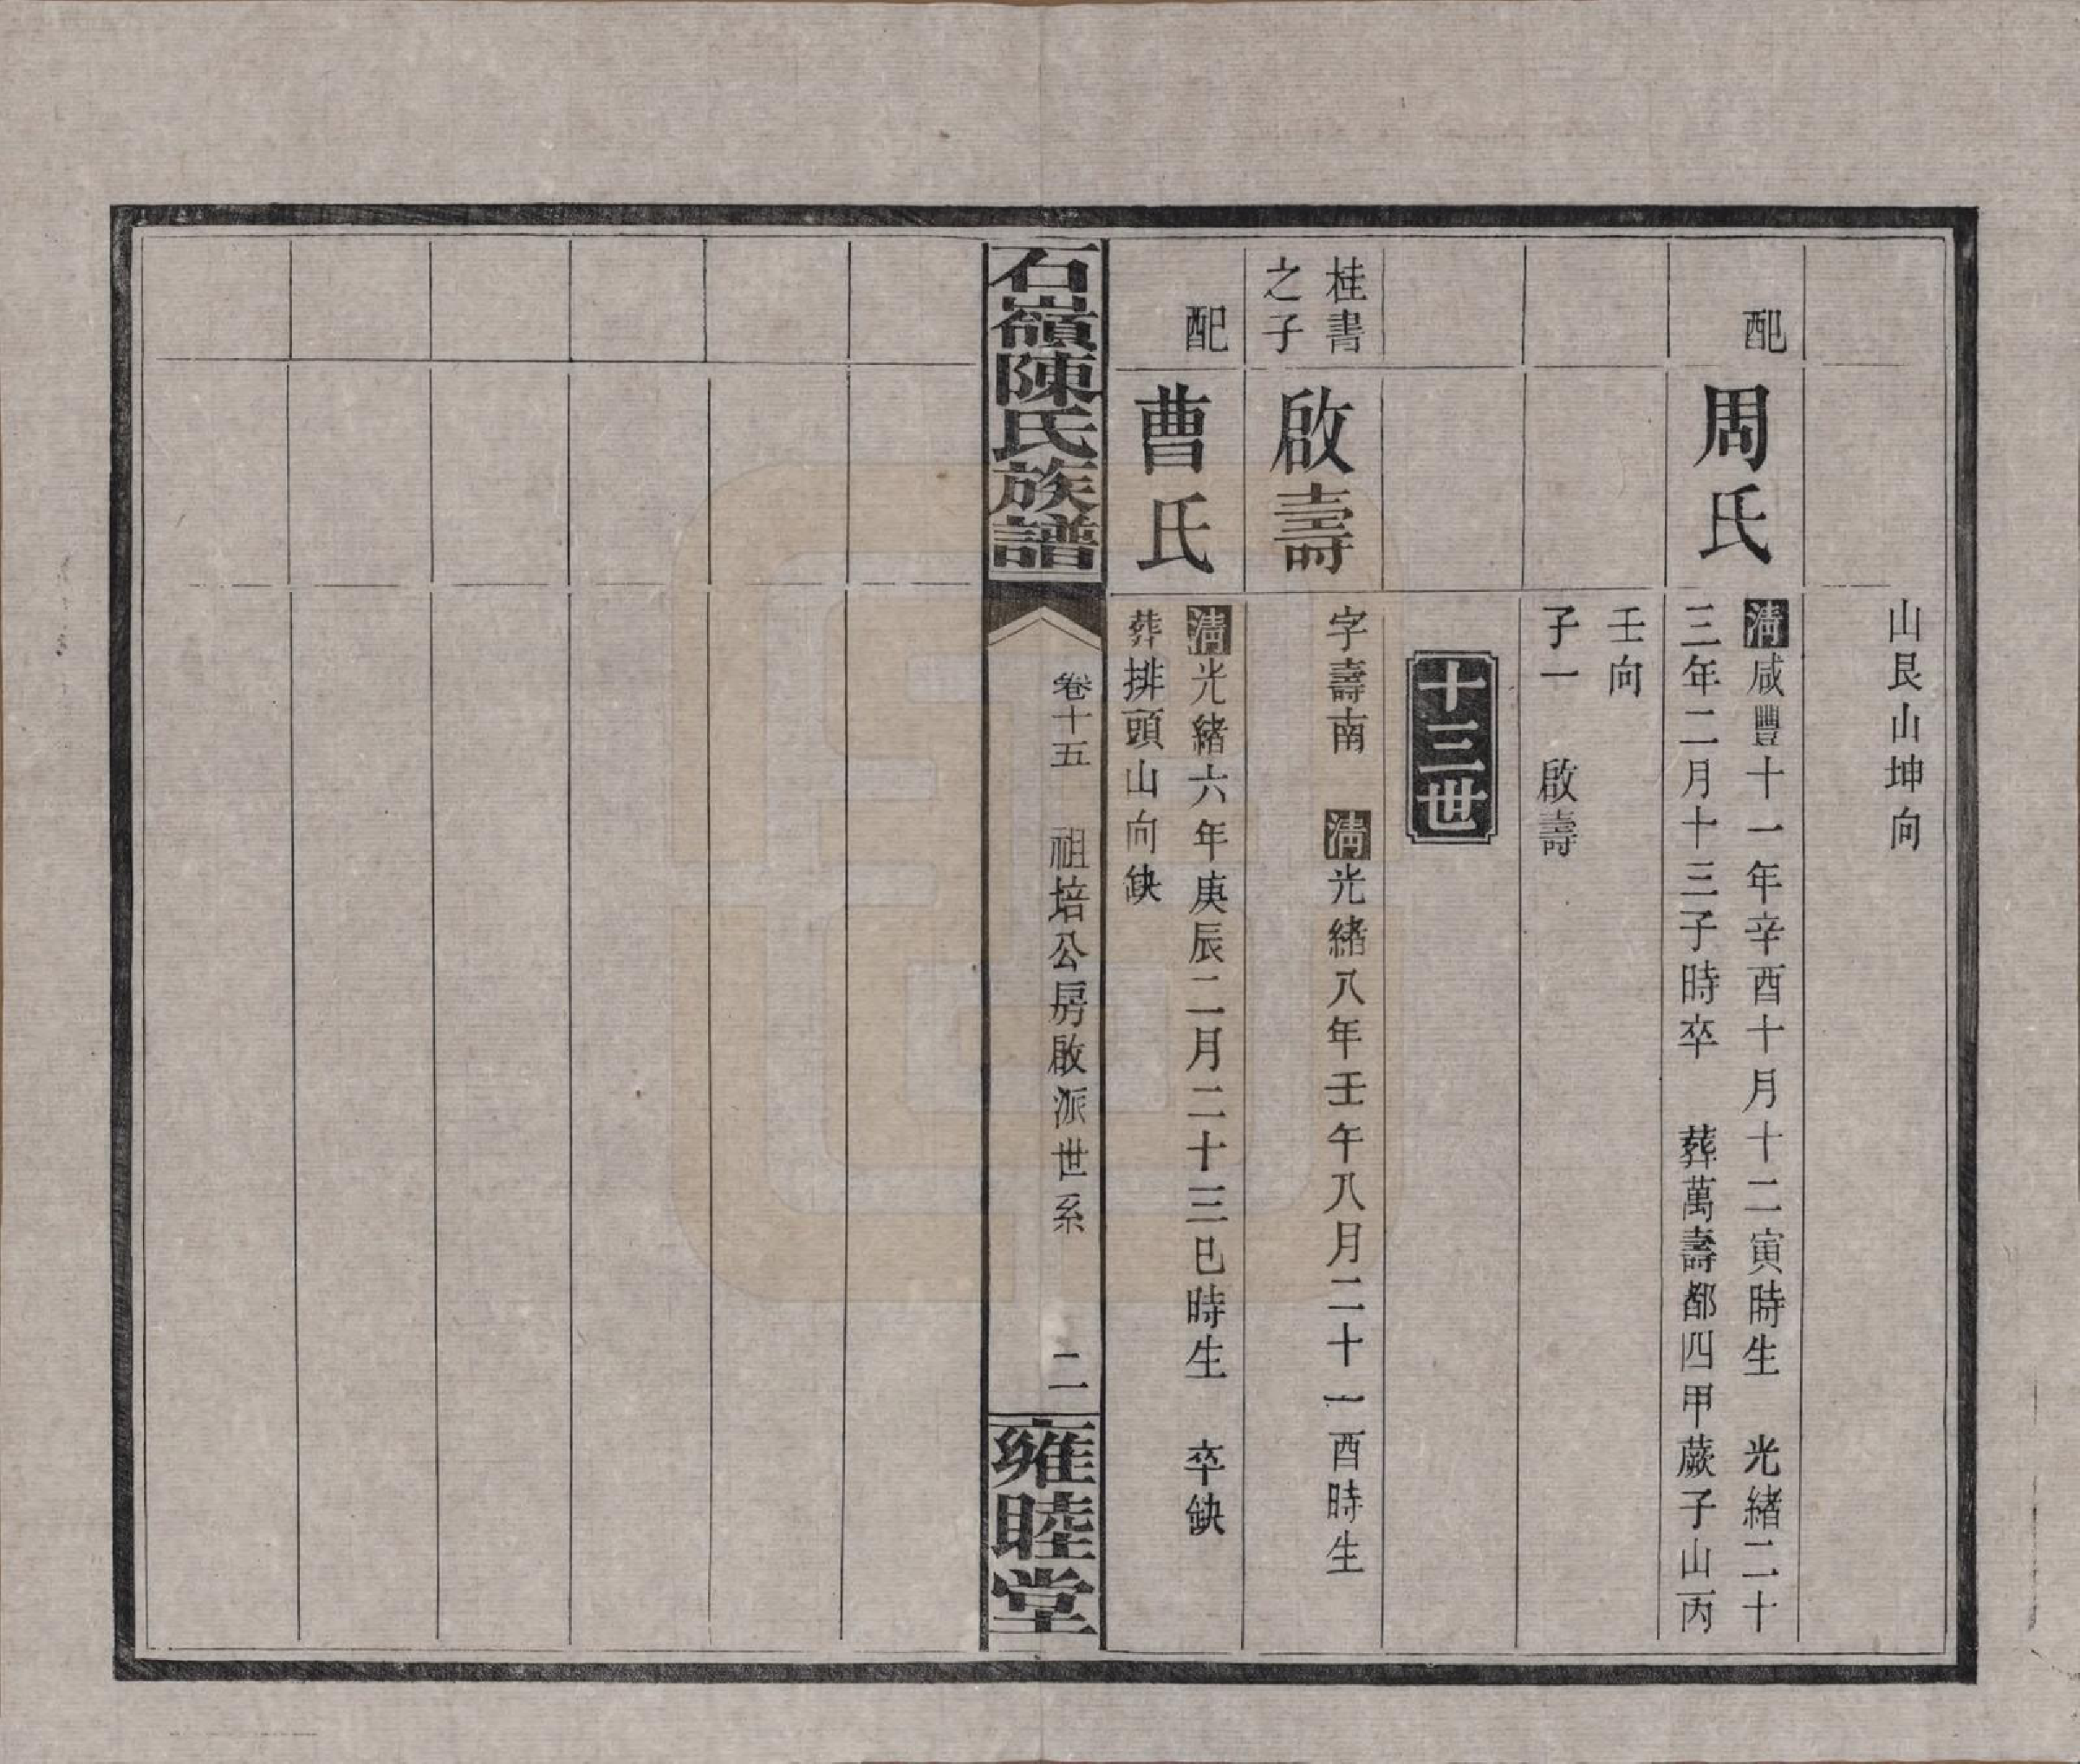 山艮山坤向
配
周氏
清咸豐十一年辛酉十月十二寅時生　光緒二十
三年二月十三子時卒　葬萬壽都四甲蕨子山丙
壬向
子一　啟壽
十三世
桂書
之子
啟壽
字壽南　清光緒八年壬午八月二十一酉時生
配
曹氏
清光緒六年庚辰二月二十三巳時生　卒缺
葬排頭山向缺
石嶺陳氏族譜
卷十五　祖培公房啟派世系　二
雍睦堂